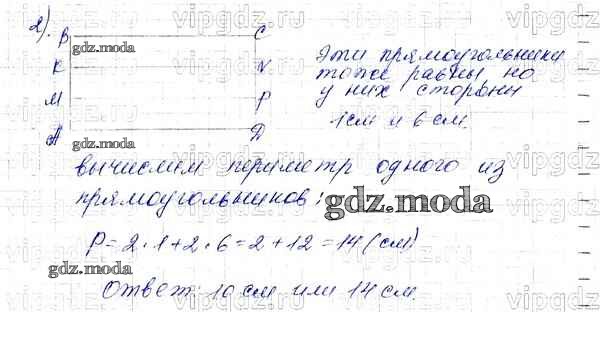 2).
B C
K N
M P
A D
Эти прямоугольники
тоже равны но
у них стороны
1 см и 6 см.
вычислим периметр одного из
прямоугольников:
P = 2 · 1 + 2 · 6 = 2 + 12 = 14 (см)
Ответ: 10 см или 14 см.
gdz.moda
gdz.moda
gdz.moda
gdz.moda
gdz.moda
vipgdz.ru
vipgdz.ru
vipgdz.ru